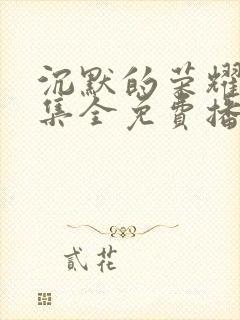 沉默的荣耀
集全免費播
貳花